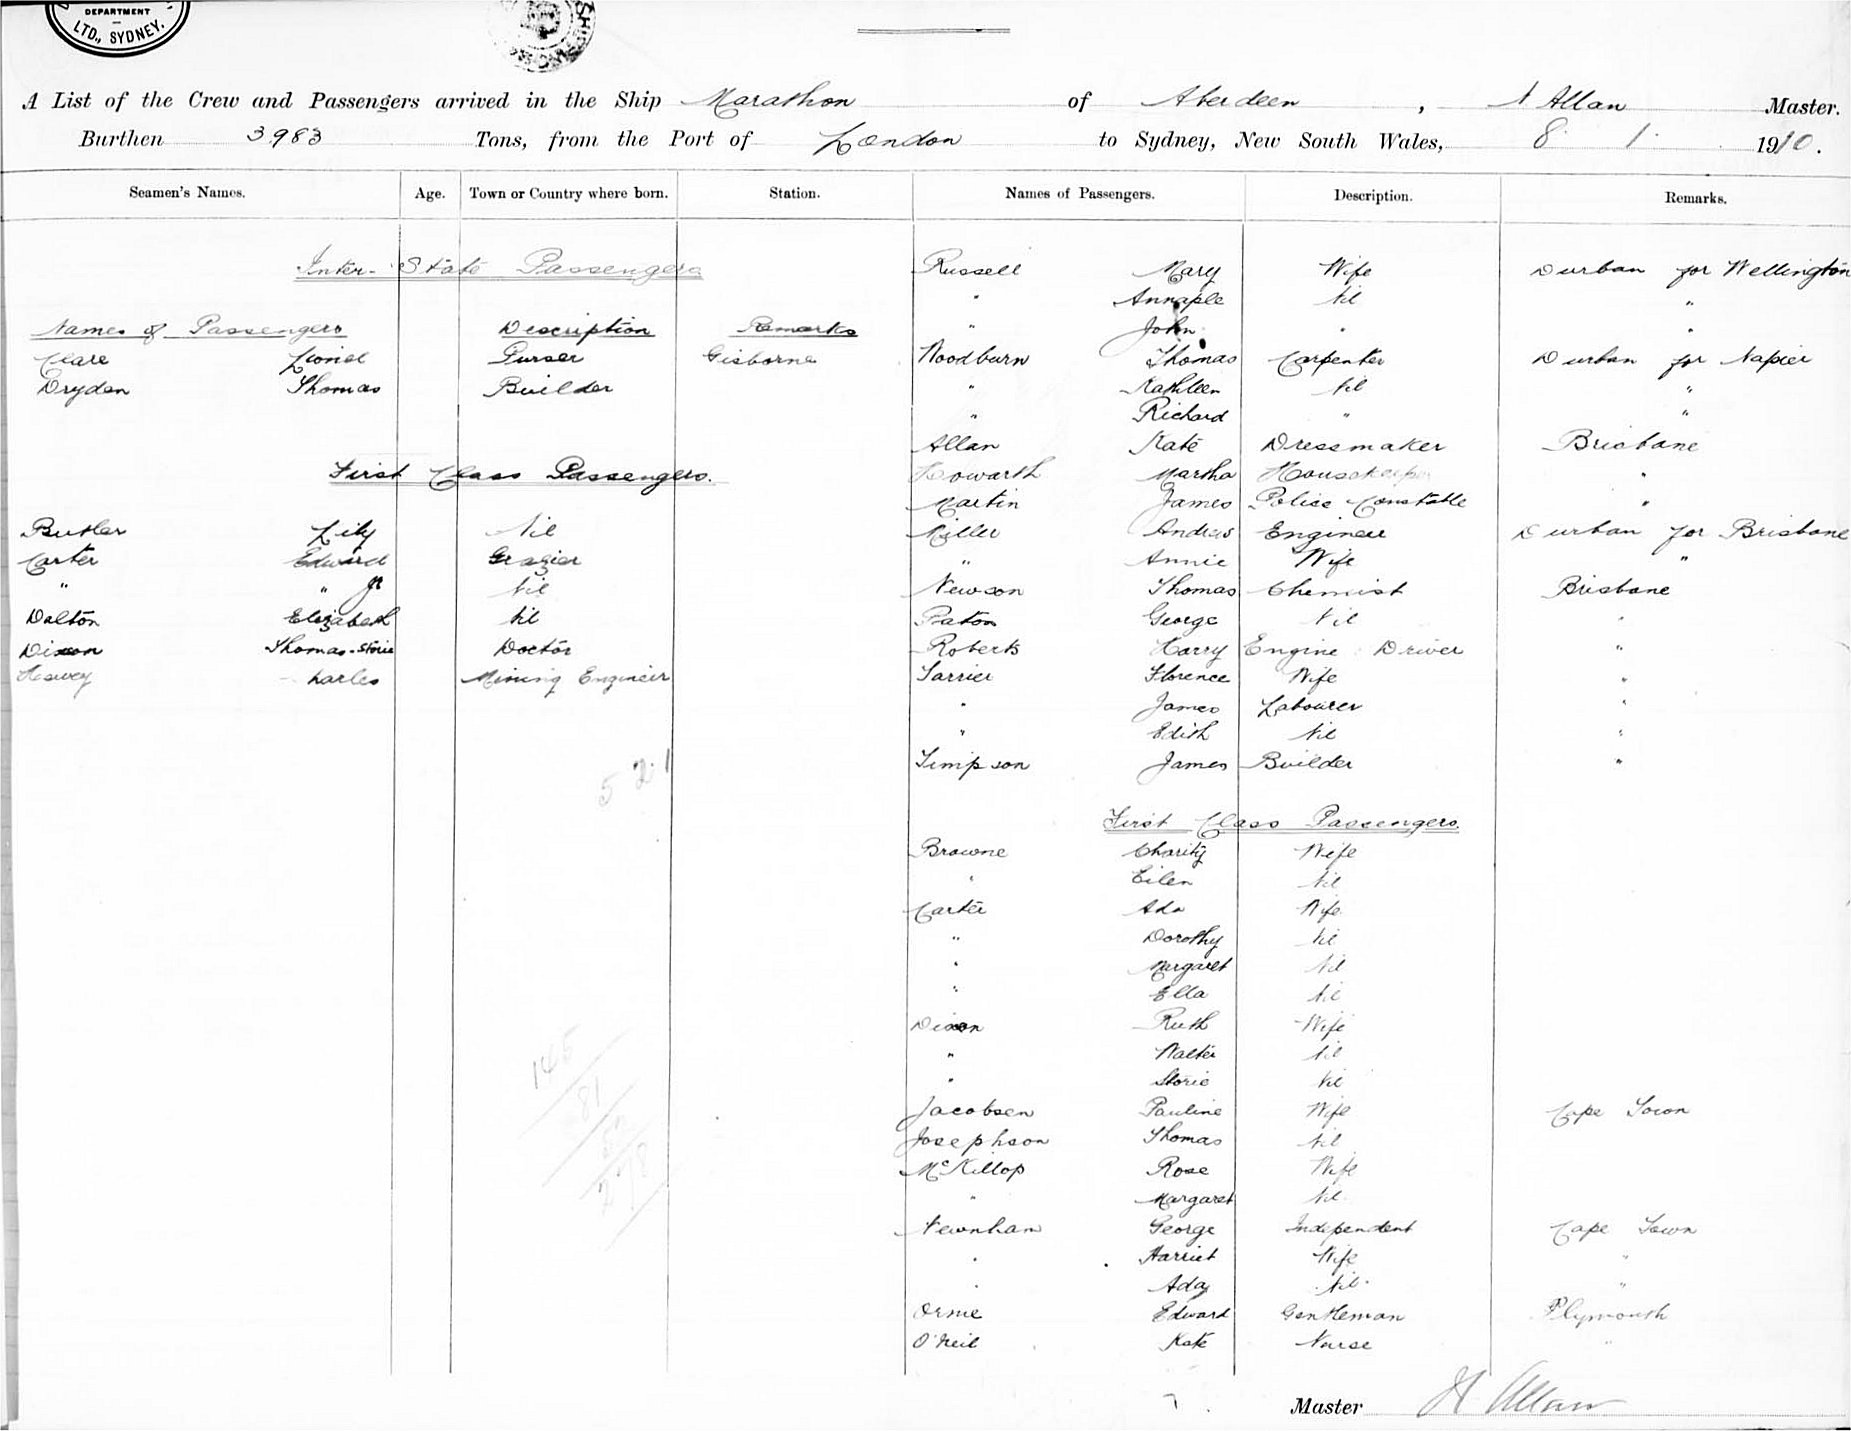 DEPARTMENT
LTD., SYDNEY.
A List of the Crew and Passengers arrived in the Ship Marathon of Aberdeen, Allan Master.
Burthen 3983 Tons, from the Port of London to Sydney, New South Wales, 8 1 1910.
Seamen's Names. Age. Town or Country where born. Station. Names of Passengers. Description. Remarks.
Inter-State Passengers
Names of Passengers Description Remarks
Clare Lionel Purser Gisborne
Dryden Thomas Builder
First Class Passengers.
Butler Lily Nil
Carter Edward Grazier
" " Jr Nil
Dalton Elizabeth Nil
Dixon Thomas-Storie Doctor
harles Mining Engineer
521
145
81
278
Russell Mary Wife Durban for Wellington
" Annaple Nil "
" John " "
Woodburn Thomas Carpenter Durban for Napier
" Kathleen Nil "
" Richard " "
Allan Kate Dressmaker Brisbane
Howarth Martha Housekeeper "
Martin James Police Constable "
Miller Andrew Engineer Durban for Brisbane
" Annie Wife "
Newson Thomas Chemist Brisbane
Paton George Nil "
Roberts Harry Engine Driver "
Florence Wife "
" James Labourer "
" Edith Nil "
Simpson James Builder "
First Class Passengers.
Browne Charity Wife
" Eilen Nil
Carter Ada Wife
" Dorothy Nil
" Margaret Nil
" Ella Nil
Dixon Ruth Wife
" Walter Nil
" Storie Nil
Jacobsen Pauline Wife Cape Town
Josephson Thomas Nil
McKillop Rose Wife
" Margaret Nil
Newnham George Independent Cape Town
" Harriet Wife "
" Ada Nil "
Orme Edward Gentleman Plymouth
O'Neil Kate Nurse "
Master Allan